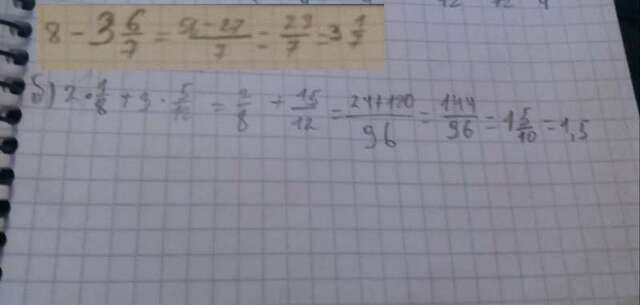 8 - 3 6/7 = 56-27/7 = 29/7 = 3 1/7
б) 2 · 1/8 + 3 · 5/12 = 2/8 + 15/12 = 24+120/96 = 144/96 = 1 5/10 = 1,5